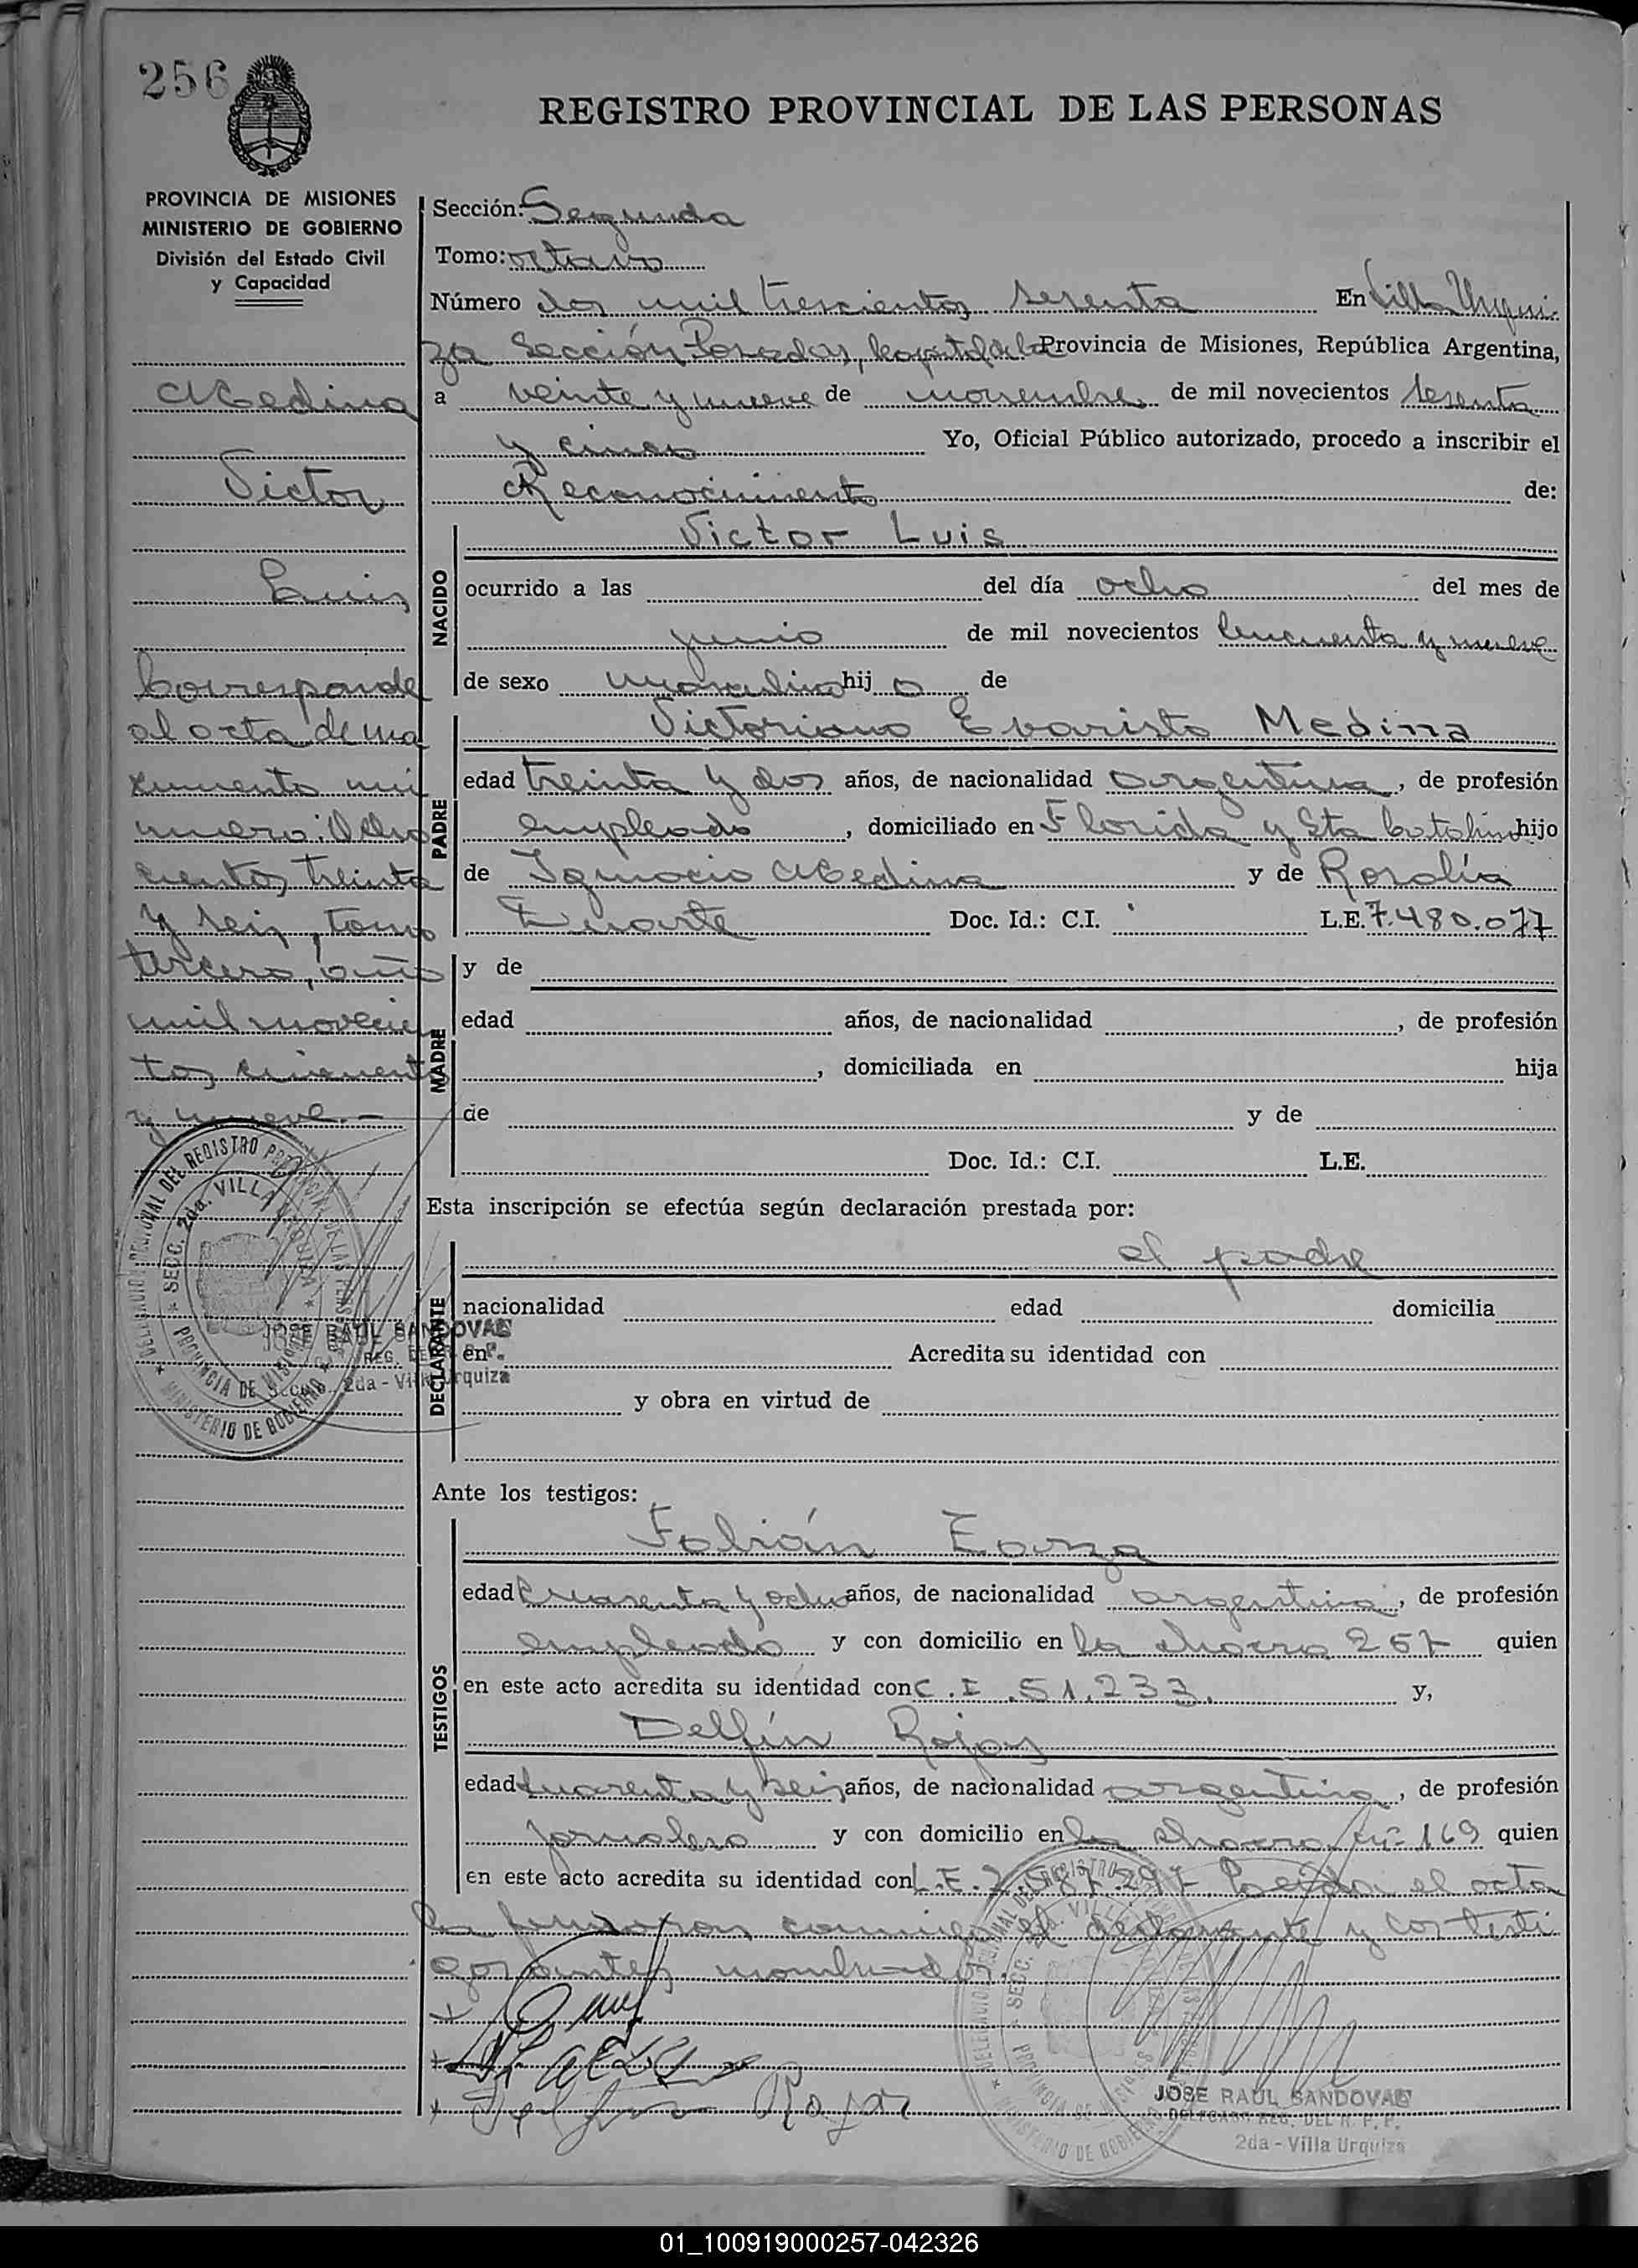 256
REGISTRO PROVINCIAL DE LAS PERSONAS
PROVINCIA DE MISIONES
MINISTERIO DE GOBIERNO
División del Estado Civil
y Capacidad
Medina
Victor
Luis
Corresponde
al acta de na
cimiento nú
mero: Ocho
cientos treinta
y seis, tomo
tercero, año
mil novecien
tos cincuenta
y nueve.-
Sección: Segunda
Tomo: octavo
Número dos mil trescientos sesenta En Villa Urqui
za Sección Posadas, Capital de la Provincia de Misiones, República Argentina,
a veinte y nueve de noviembre de mil novecientos sesenta
y cinco Yo, Oficial Público autorizado, procedo a inscribir el
Reconocimiento de:
NACIDO
Victor Luis
ocurrido a las del día ocho del mes de
junio de mil novecientos cincuenta y nueve
de sexo masculino hijo de
PADRE
Victoriano Evaristo Medina
edad treinta y dos años, de nacionalidad argentina, de profesión
empleado, domiciliado en Florida y Sta Catalina hijo
de Ignacio Medina y de Rosalía
Duarte Doc. Id.: C.I. L.E. 7.480.077
MADRE
y de
edad años, de nacionalidad , de profesión
, domiciliada en hija
de y de
Doc. Id.: C.I. L.E.
Esta inscripción se efectúa según declaración prestada por:
DECLARANTE
el padre
nacionalidad edad domicilia
en Acredita su identidad con
y obra en virtud de
DELEGACION REGIONAL DEL REGISTRO PROVINCIAL DE LAS PERSONAS
SECC. 2da. VILLA URQUIZA
PROVINCIA DE MISIONES
MINISTERIO DE GOBIERNO
JOSE RAUL SANDOVAL
2da - Villa Urquiza
Ante los testigos:
TESTIGOS
Fabián
edad cuarenta y ocho años, de nacionalidad argentina, de profesión
empleado y con domicilio en la chacra 267 quien
en este acto acredita su identidad con C.I. 51.233. y,
Delfín Rojas
edad cuarenta y seis años, de nacionalidad argentina, de profesión
jornalero y con domicilio en la chacra nº 169 quien
en este acto acredita su identidad con L.E. Leída el acta
la firmaron conmigo el declarante y los testi
gos antes nombrados
Delfin Rojas
JOSE RAUL SANDOVAL
DELEGADO REG. DEL R. P. P.
2da - Villa Urquiza
01_100919000257-042326